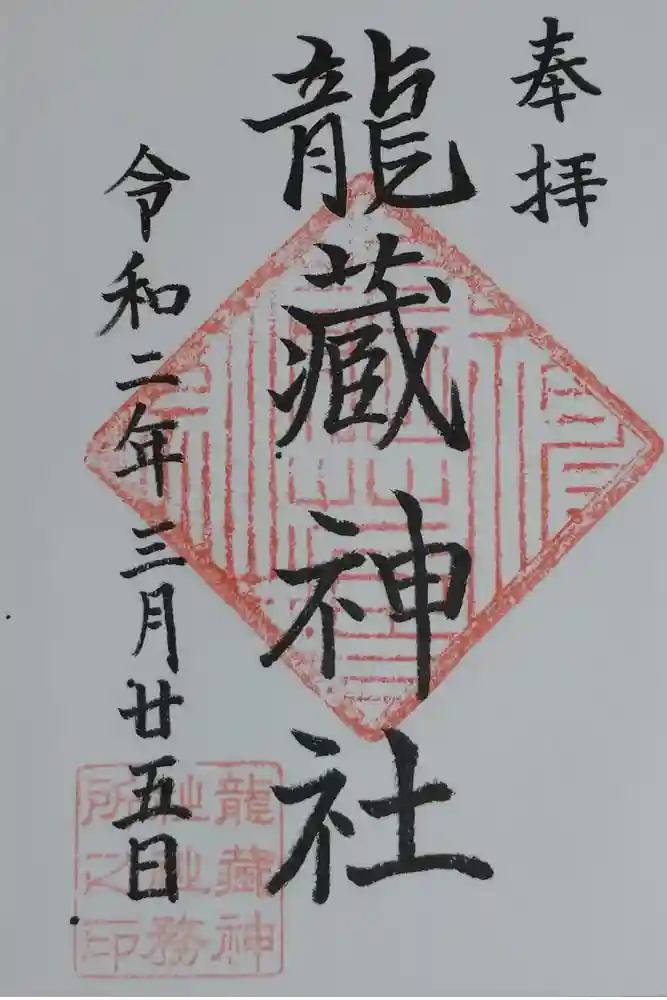 奉拝
龍藏神社
令和二年三月廿五日
龍藏神
社社務
所之印